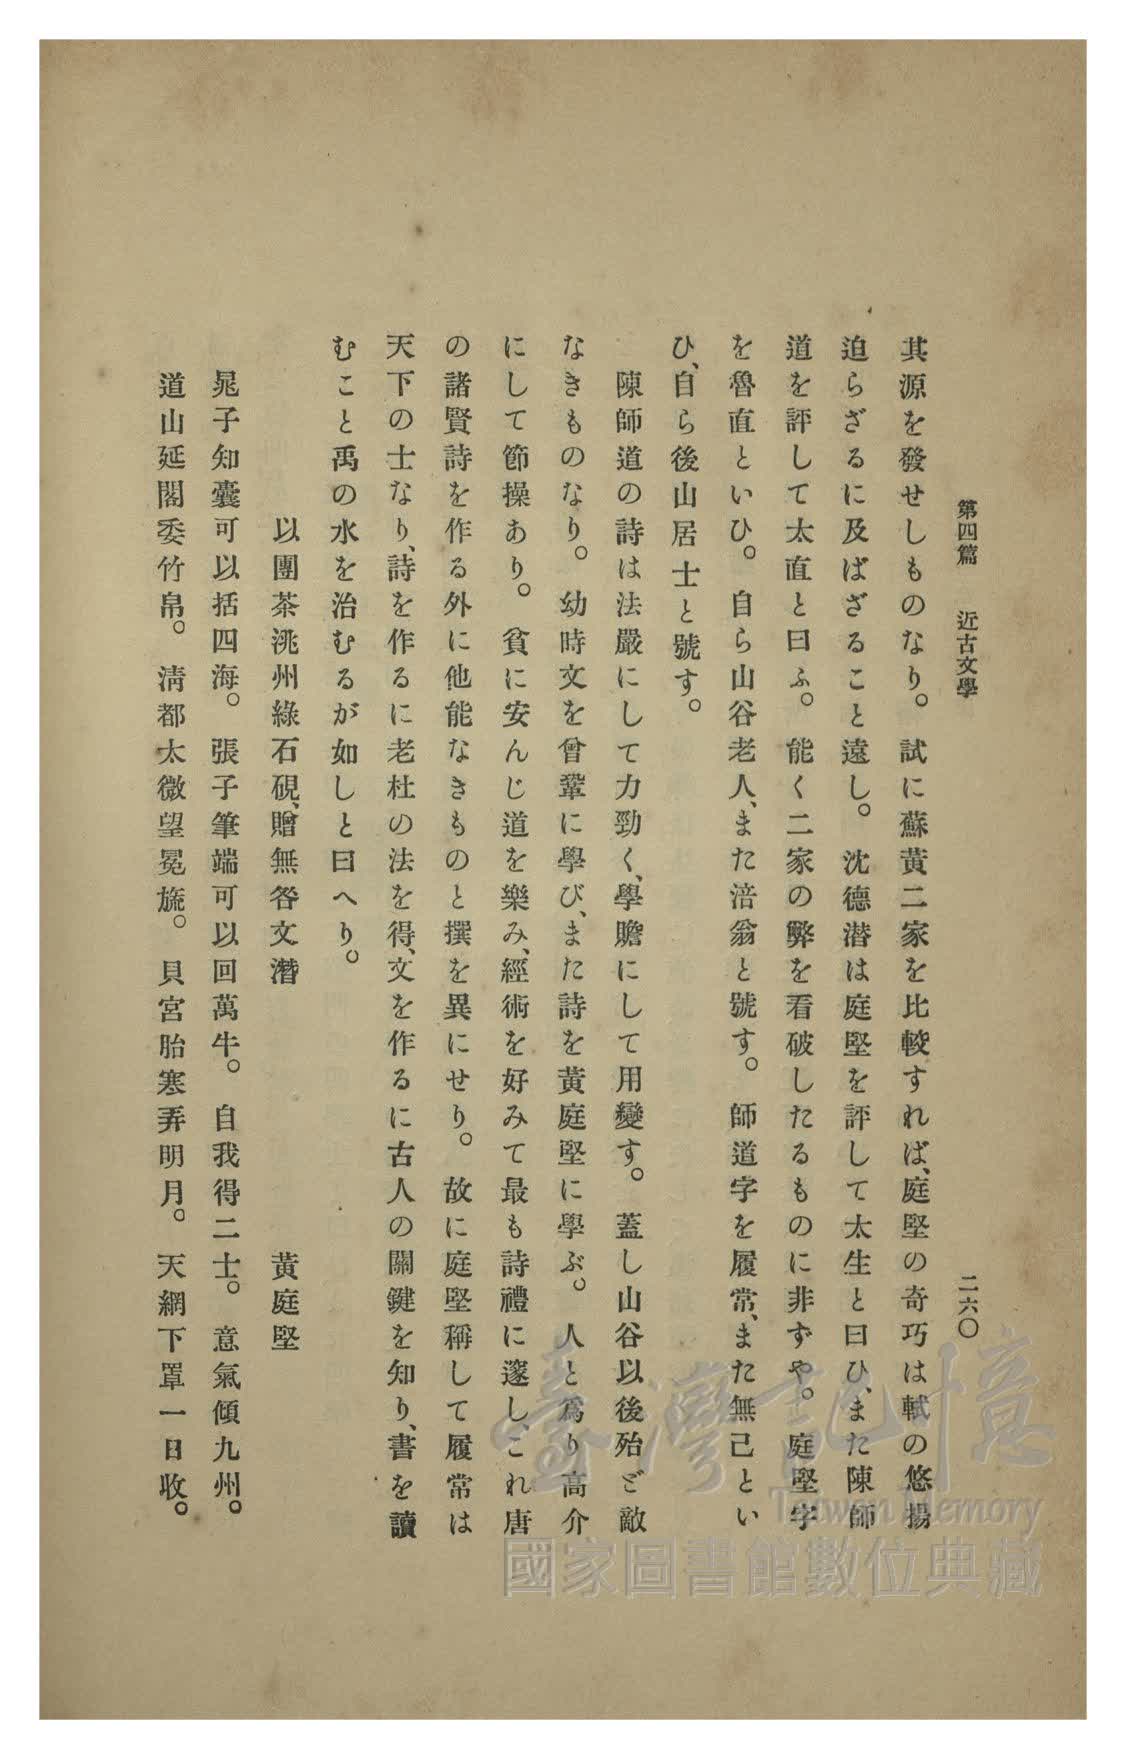 第四篇　近古文學　二六〇
其源を發せしものなり。試に蘇黃二家を比較すれば、庭堅の奇巧は軾の悠揚
迫らざるに及ばざること遠し。沈德潜は庭堅を評して太生と曰ひ、また陳師
道を評して太直と曰ふ。能く二家の弊を看破したるものに非ずや。庭堅字
を魯直といひ。自ら山谷老人、また涪翁と號す。師道字を履常、また無己とい
ひ、自ら後山居士と號す。
陳師道の詩は法嚴にして力勁く、學贍にして用變す。蓋し山谷以後殆ど敵
なきものなり。幼時文を曾鞏に學び、また詩を黃庭堅に學ぶ。人と爲り高介
にして節操あり。貧に安んじ道を樂み、經術を好みて最も詩禮に邃し、これ唐
の諸賢詩を作る外に他能なきものと撰を異にせり。故に庭堅稱して履常は
天下の士なり、詩を作るに老杜の法を得、文を作るに古人の關鍵を知り、書を讀
むこと禹の水を治むるが如しと曰へり。
以團茶洮州綠石硯、贈無咎文潛　黃庭堅
晁子知囊可以括四海。張子筆端可以回萬牛。自我得二士。意氣傾九州。
道山延閣委竹帛。淸都太微望冕旒。貝宮胎寒弄明月。天網下罩一日收。
臺灣記憶
Taiwan Memory
國家圖書館數位典藏